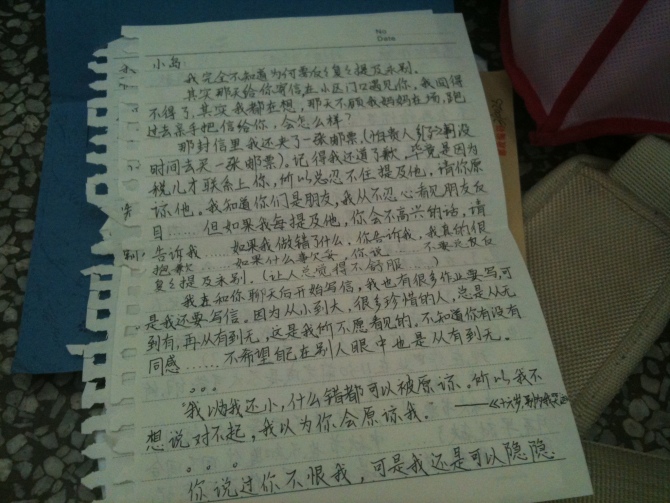 No
Date
小岛:
我完全不知道为何要反反复复提及永别。
其实那天给你寄信在小区门口遇见你,我囧得
不得了,其实我都在想,那天不顾我妈妈在场,跑
过去亲手把信给你,会怎么样?
那封信里我还夹了一张邮票,(
时间去买一张邮票),记得我还道了歉,毕竟是因为
才联系上你,所以总忍不住提及他,请你原
谅他。我知道你们是朋友,我从不忍心看见朋友反
目……但如果我每提及他,你会不高兴的话,请
告诉我……如果我做错了什么,你告诉我,我真的很
抱歉……如果什么事欠妥,你说……不要反反
复复提及永别。(让人总觉得不舒服……)
我在和你聊天后开始写信,我也有很多作业要写,可
是我还要写信。因为从小到大,很多珍惜的人,总是从无
到有,再从有到无,这是我所不愿看见的。不知道你有没有
同感……不希望自己在别人眼中也是从有到无。
。。。
“我以为我还小,什么错都可以被原谅,所以我不
想说对不起,我以为你会原谅我。”——《十六岁
。。。
你说过你不恨我,可是我还是可以隐隐